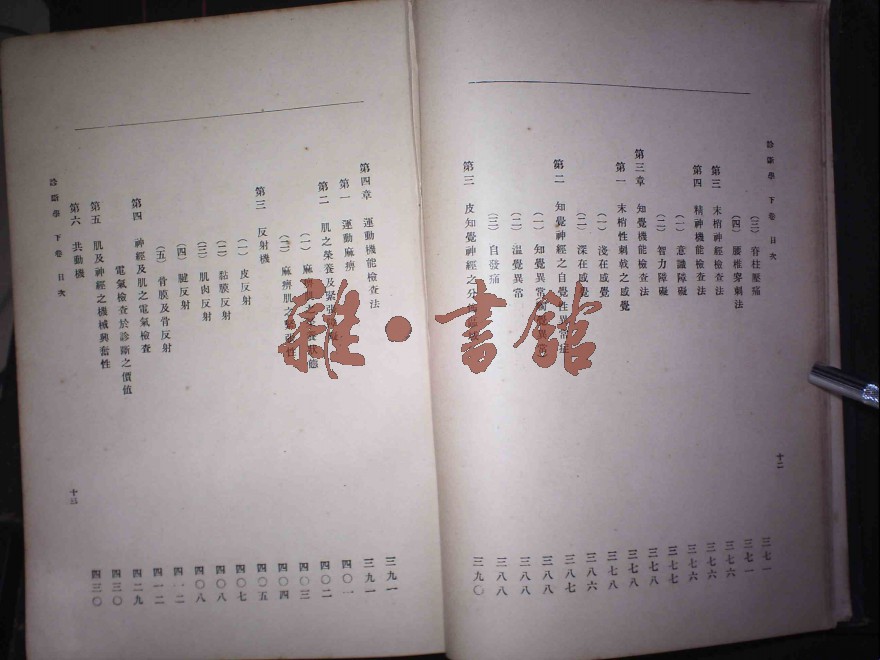 診斷學 下卷 目次
(三) 脊柱壓痛 三七一
(四) 腰椎穿刺法 三七一
第三 末梢神經檢查法 三七六
第四 精神機能檢查法 三七六
(一) 意識障礙 三七六
(二) 智力障礙 三七七
第三章 知覺機能檢查法 三七八
第一 末梢性刺戟之感覺 三七八
(一) 淺在感覺 三七八
(二) 深在感覺 三八六
第二 知覺神經之自覺性異常症 三八七
(一) 知覺異常 三八八
(二) 溫覺異常 三八八
(三) 自發痛 三八八
第三 皮知覺神經之分 三九〇
十二
第四章 運動機能檢查法 三九一
第一 運動麻痹 三九一
第二 肌之榮養及緊張 四〇一
(一) 麻痹肌之榮養狀態 四〇二
(二) 麻痹肌之緊張性 四〇三
第三 反射機 四〇四
(一) 皮反射 四〇五
(二) 黏膜反射 四〇七
(三) 肌肉反射 四〇八
(四) 腱反射 四〇八
(五) 骨膜及骨反射 四一二
第四 神經及肌之電氣檢查 四一二
電氣檢查於診斷之價值 四二九
第五 肌及神經之機械興奮性 四三〇
第六 共動機 四三〇
診斷學 下卷 目次
十三
雜·書館